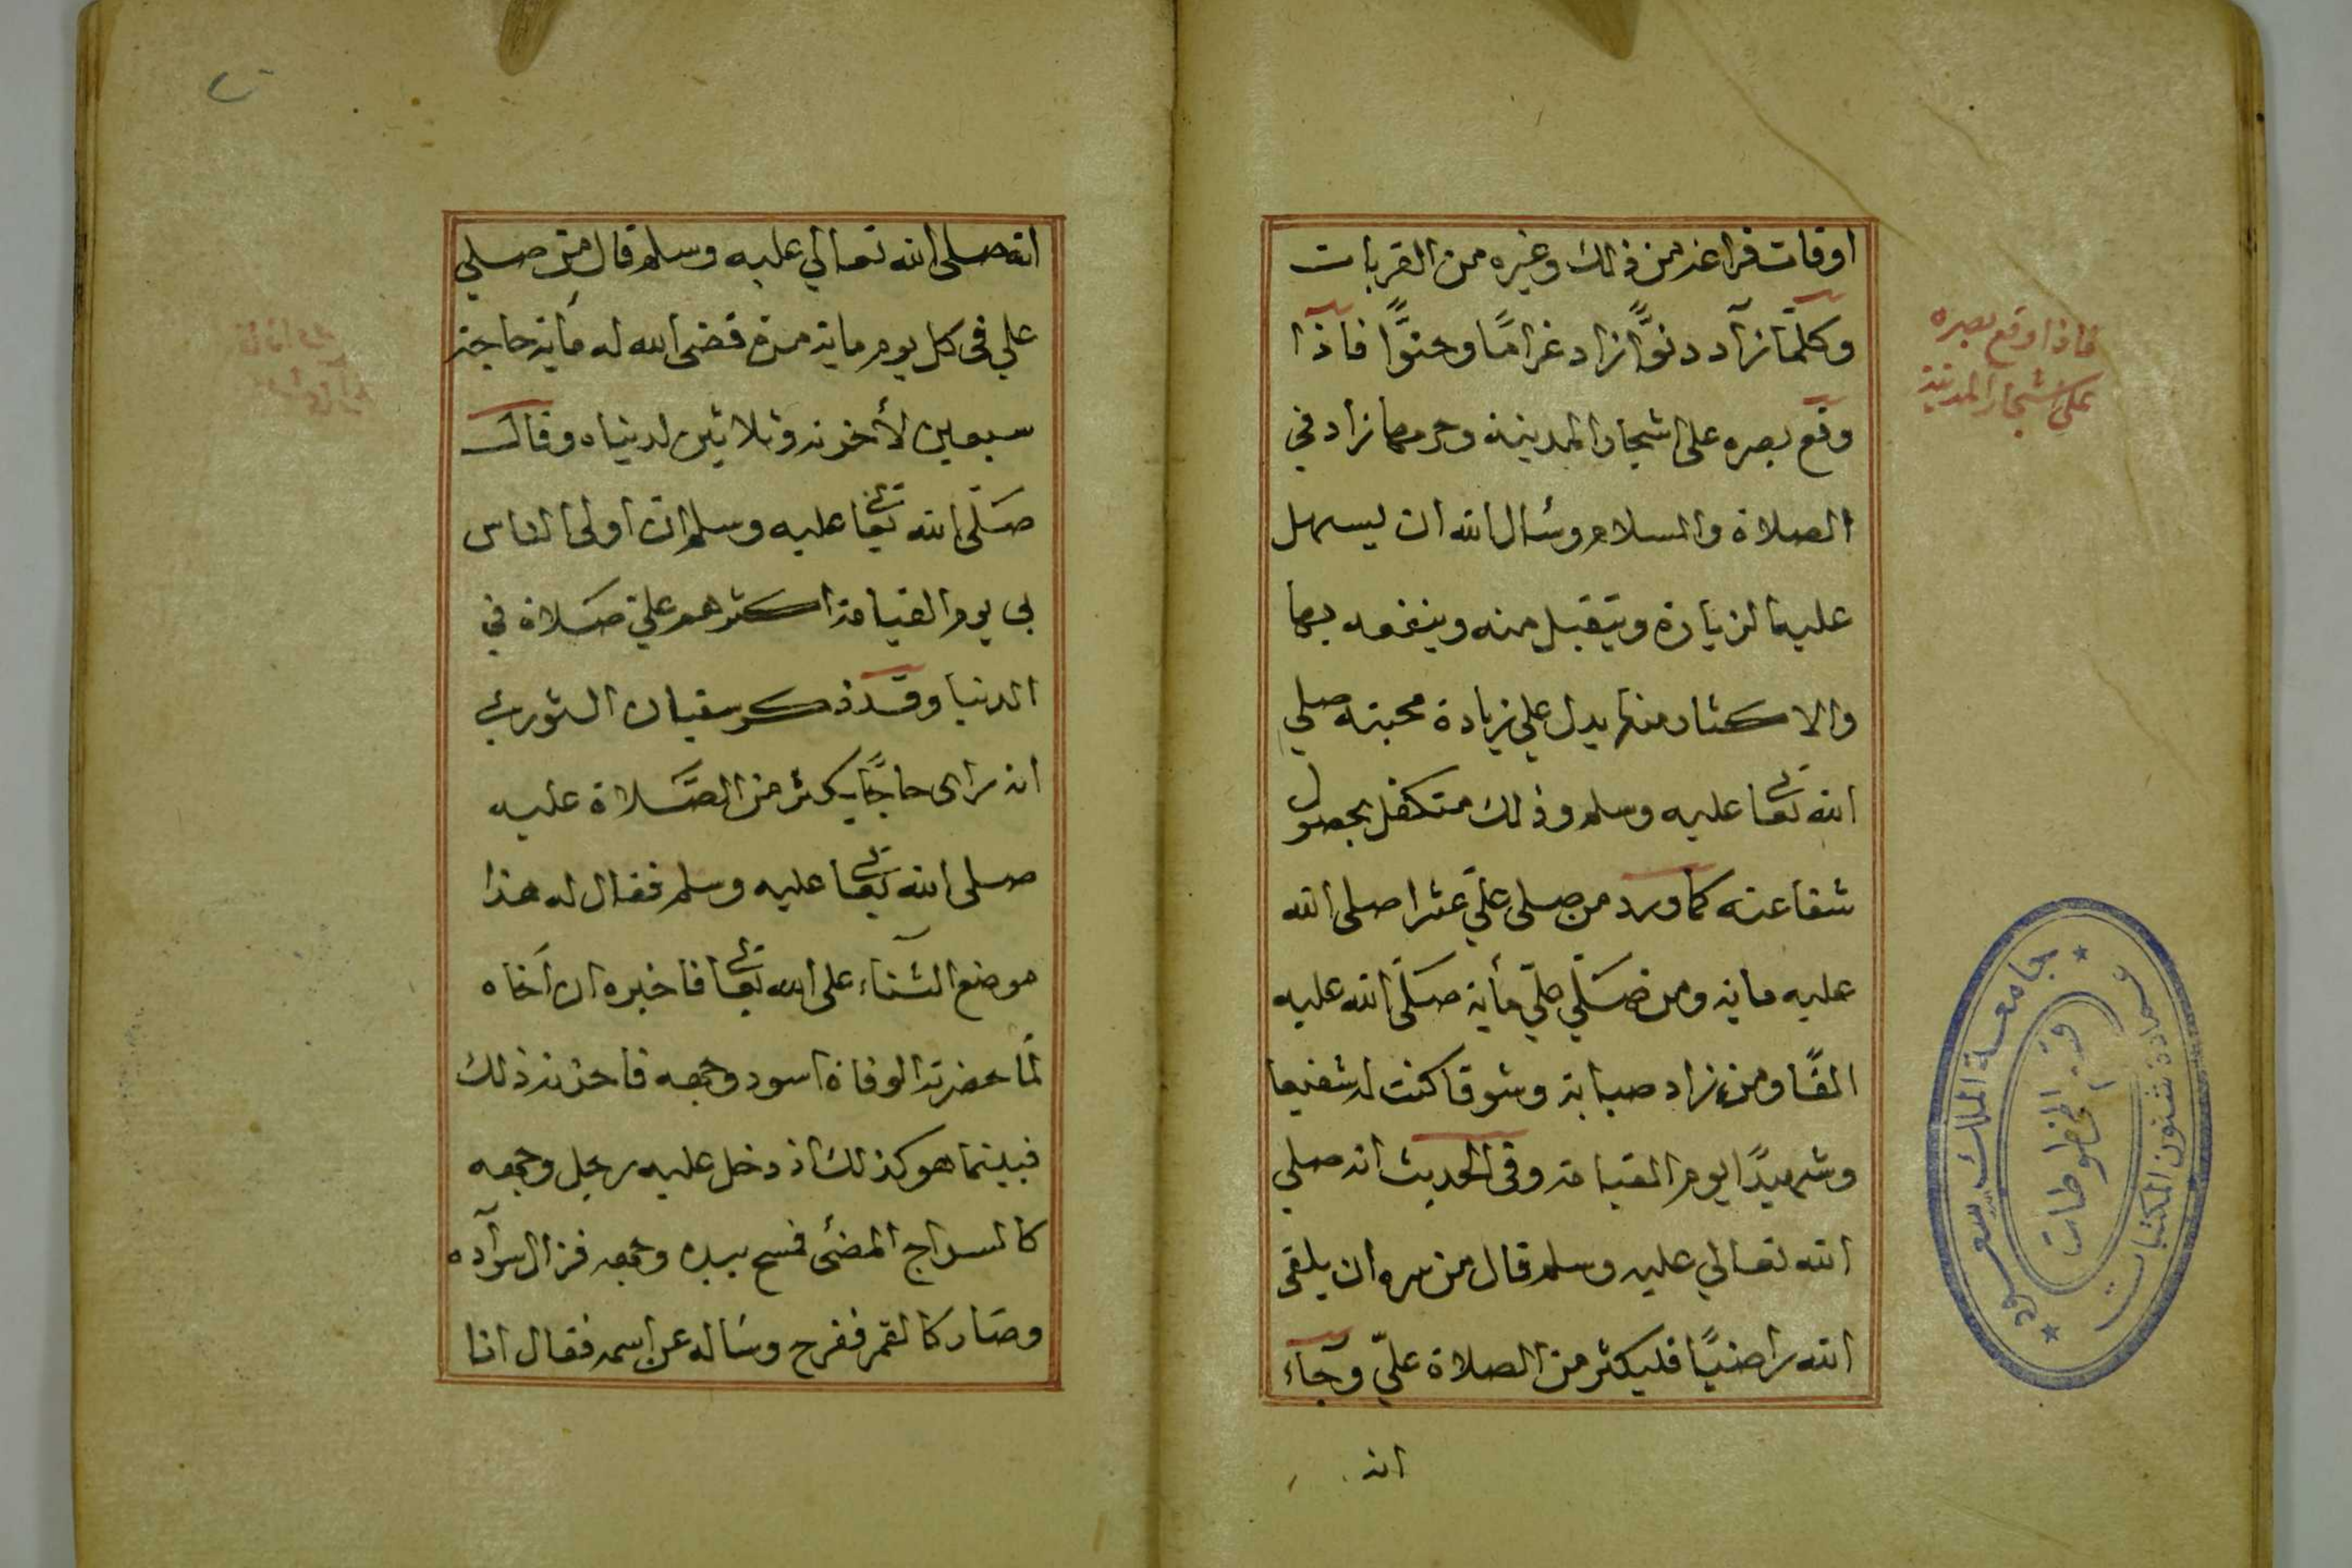 اوقات فراغه من ذلك وغيره من القربات
وكلّما زاد دنوًّا زاد غرامًا وحنوًّا فاذا
وقع بصره على اشجار المدينة وحرمها زاد في
الصلاة والسلام وسأل الله ان يسهل
عليه الزيارة ويتقبل منه وينفعه بها
والاكثار منها يدل علي زيادة محبته صلي
الله تعالى عليه وسلم وذلك متكفل بحصول
شفاعته كما ورد من صلى عليّ عشرا صلى الله
عليه ماية ومن صَلّي عليّ مأية صَلّى الله عليه
الفًا ومن زاد صبابة وشوقا كنت له شفيعا
وشهيدًا يوم القيامة وفى الحديث انه صلي
الله تعالي عليه وسلم قال من سره ان يلقى
الله راضيًا فليكثر من الصلاة عليّ وجآء
انه
فاذا وقع بصره
على اشجار المدينة
جامعة الملك سعود
عمادة شئون المكتبات
قسم المخطوطات
انه صلى الله تعالي عليه وسلم قال من صلي
علي في كل يوم ماية مرة قضى الله له مأية حاجة
سبعين لأخرته وثلاثين لدنياه وقال
صَلّى الله تعالى عليه وسلم ان اولى الناس
بى يوم القيامة اكثرهم عليّ صَلاة في
الدنيا وقد ذكر سفيان الثوري
انه راى حاجًّا يكثر من الصَّلاة عليه
صلى الله تعالى عليه وسلم فقال له هذا
موضع الثناء على الله تعالى فاخبره ان اَخاه
لمّا حضرته الوفاة اسود وجهه فاحزنه ذلك
فبينما هو كذلك اذ دخل عليه رجل وجهه
كالسراج المضئ فمسح بيده وجهه فزال سوآده
وصَار كالقمر ففرح وسَاله عن اسمه فقال انا